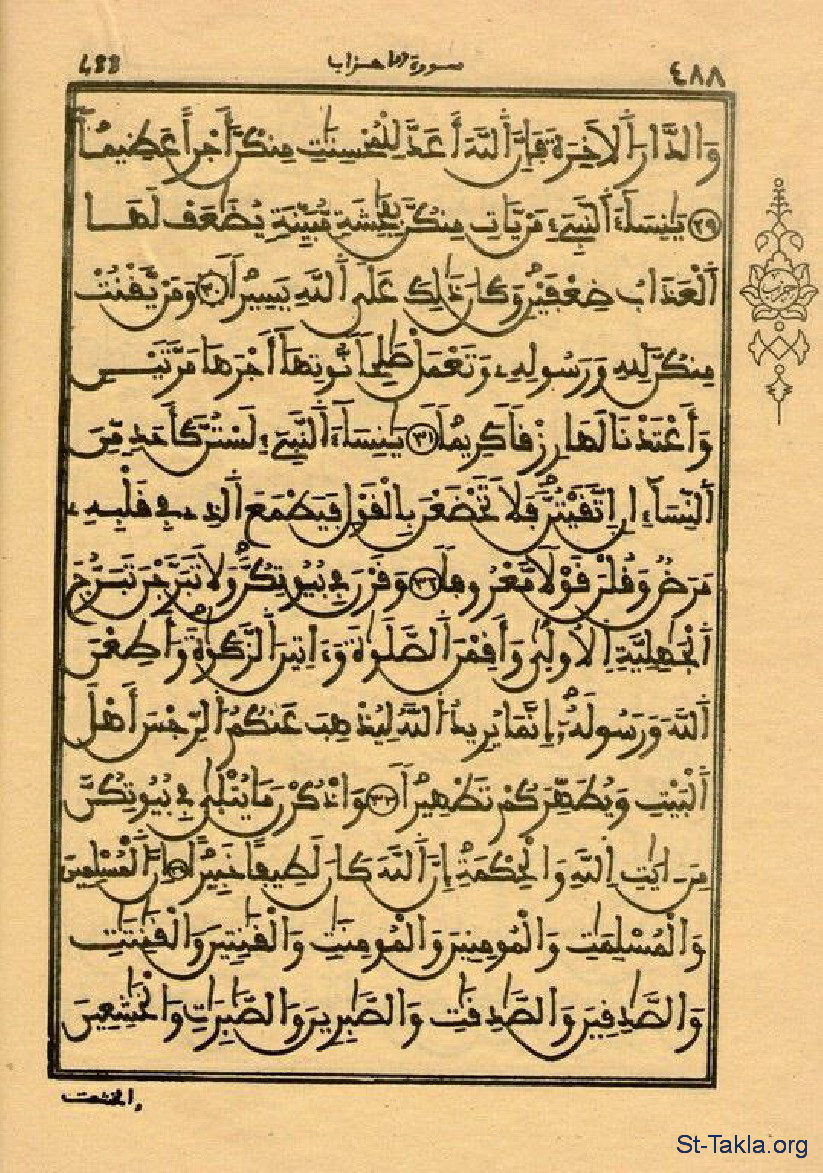 488 سورة الاحزاب ٤٨٨
وَالدَّارَ اَلَاخِرَةَ فَإِنَّ اَللَّهَ أَعَدَّ لِلْمُحْسِنَٰتِ مِنكُنَّ أَجْراً عَظِيماً
٢٩ يَٰنِسَآءَ اَلنَّبِيٓءِ مَنْ يَّاتِ مِنكُنَّ بِفَٰحِشَةٖ مُّبَيِّنَةٖ يُضَٰعَفْ لَهَا
اَلْعَذَابُ ضِعْفَيْنِ وَكَانَ ذَٰلِكَ عَلَى اَللَّهِ يَسِيراً ٣٠ وَمَنْ يَّقْنُتْ
مِنكُنَّ لِلهِ وَرَسُولِهِۦ وَتَعْمَلْ صَٰلِحاً نُّوتِهَآ أَجْرَهَا مَرَّتَيْنِ
وَأَعْتَدْنَا لَهَا رِزْقاً كَرِيماً ٣١ يَٰنِسَآءَ اَلنَّبِيٓءِ لَسْتُنَّ كَأَحَدٖ مِّنَ
اَلنِّسَآءِ اِنِ اِتَّقَيْتُنَّ فَلَا تَخْضَعْنَ بِالْقَوْلِ فَيَطْمَعَ اَلذِے فِے قَلْبِهِۦ
مَرَضٌ وَقُلْنَ قَوْلًا مَّعْرُوفاً ٣٢ وَقَرْنَ فِے بُيُوتِكُنَّ وَلَا تَبَرَّجْنَ تَبَرُّجَ
اَلْجَٰهِلِيَّةِ اِلُاولَىٰ وَأَقِمْنَ اَلصَّلَوٰةَ وَءَاتِينَ اَلزَّكَوٰةَ وَأَطِعْنَ
اَللَّهَ وَرَسُولَهُۥٓ إِنَّمَا يُرِيدُ اُللَّهُ لِيُذْهِبَ عَنكُمُ اُلرِّجْسَ أَهْلَ
اَلْبَيْتِ وَيُطَهِّرَكُمْ تَطْهِيراً ٣٣ وَاذْكُرْنَ مَا يُتْلَىٰ فِے بُيُوتِكُنَّ
مِنَ ايَٰتِ اِللَّهِ وَالْحِكْمَةِ إِنَّ اَللَّهَ كَانَ لَطِيفاً خَبِيراً ٣٤ اِنَّ اَلْمُسْلِمِينَ
وَالْمُسْلِمَٰتِ وَالْمُومِنِينَ وَالْمُومِنَٰتِ وَالْقَٰنِتِينَ وَالْقَٰنِتَٰتِ
وَالصَّٰدِقِينَ وَالصَّٰدِقَٰتِ وَالصَّٰبِرِينَ وَالصَّٰبِرَٰتِ وَالْخَٰشِعِينَ
والخشعت
St-Takla.org